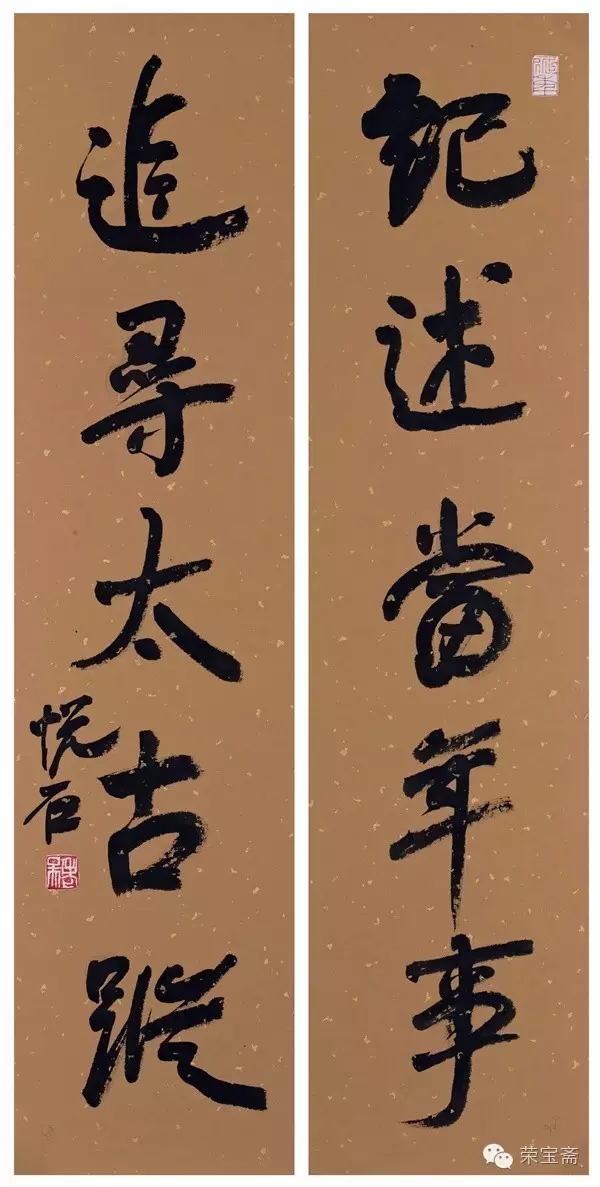 紀述當年事
追尋太古蹤
悦石
荣宝斋